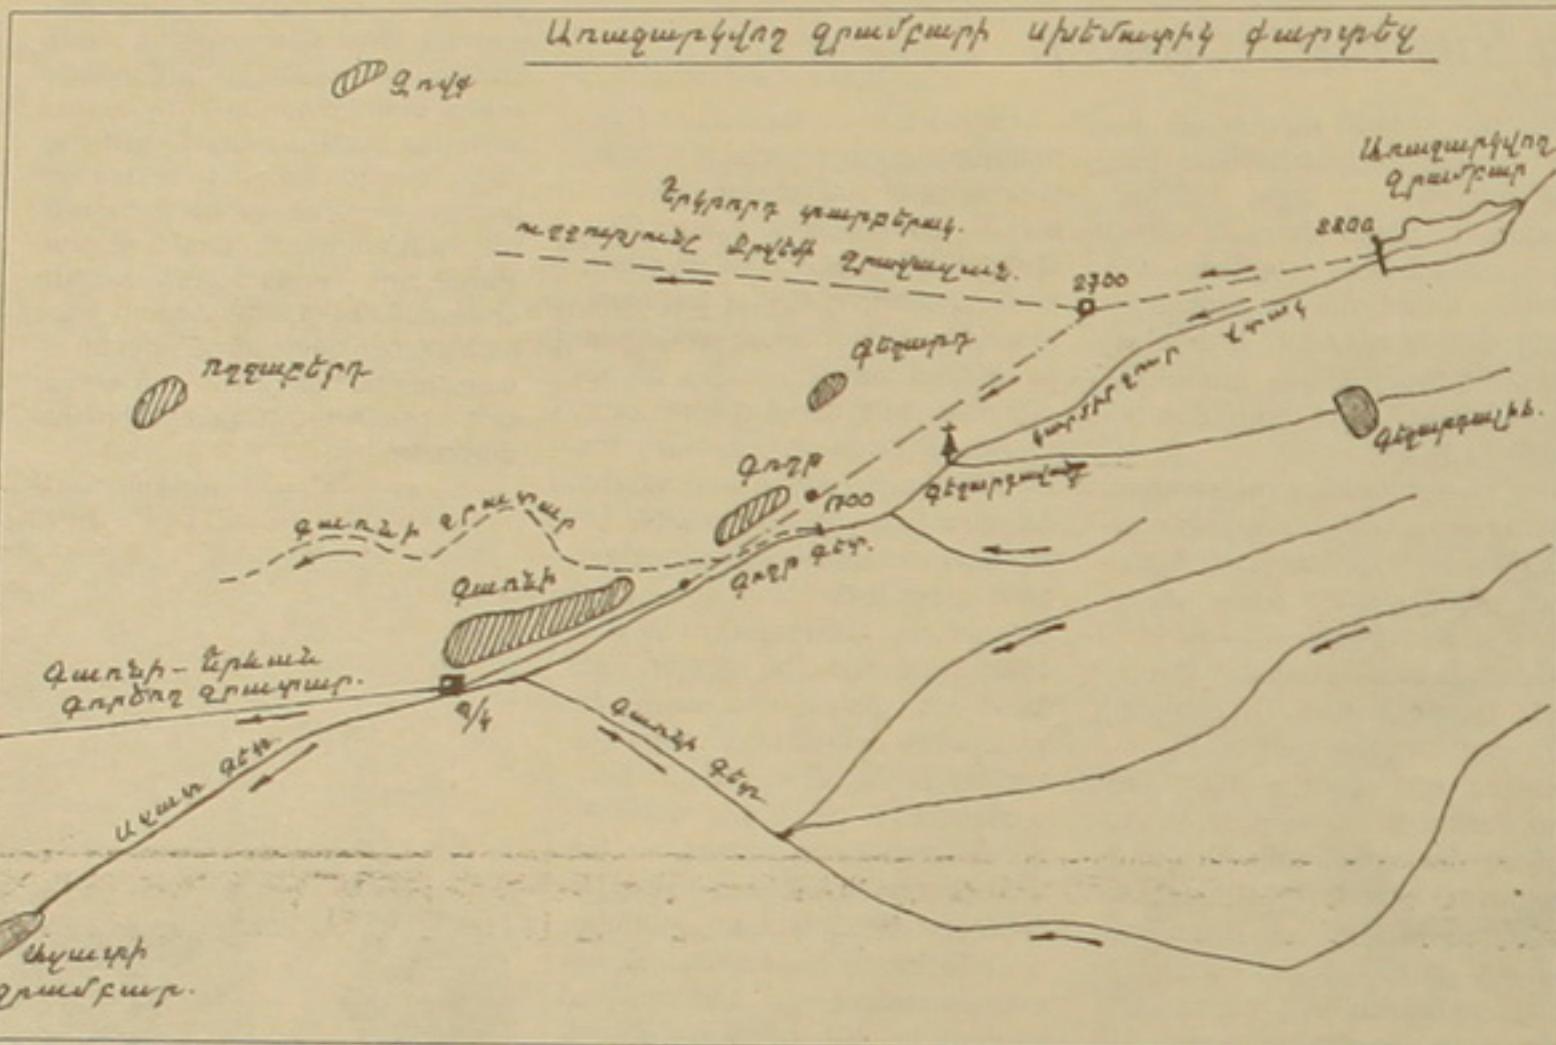 Առաջարկվող ջրամբարի սխեմատիկ քարտեզ
Ջովք
Առաջարկվող
Ջրամբար
Երկրորդ տարբերակ.
ուղղությունը Ջրվեժի Ջրավազան.
2800
2700
Գեղարդ
Ողջաբերդ
վտակ
Կարմիր ջուր
Գեղարդալիճ.
Գողթ
1700
Գեղարդավանք
Գառնի ջրատար
Գողթ գետ.
Գառնի
Գառնի - Երևան
Գործող ջրատար.
Գառնի գետ
Ազատ գետ
Ազատի
ջրամբար.